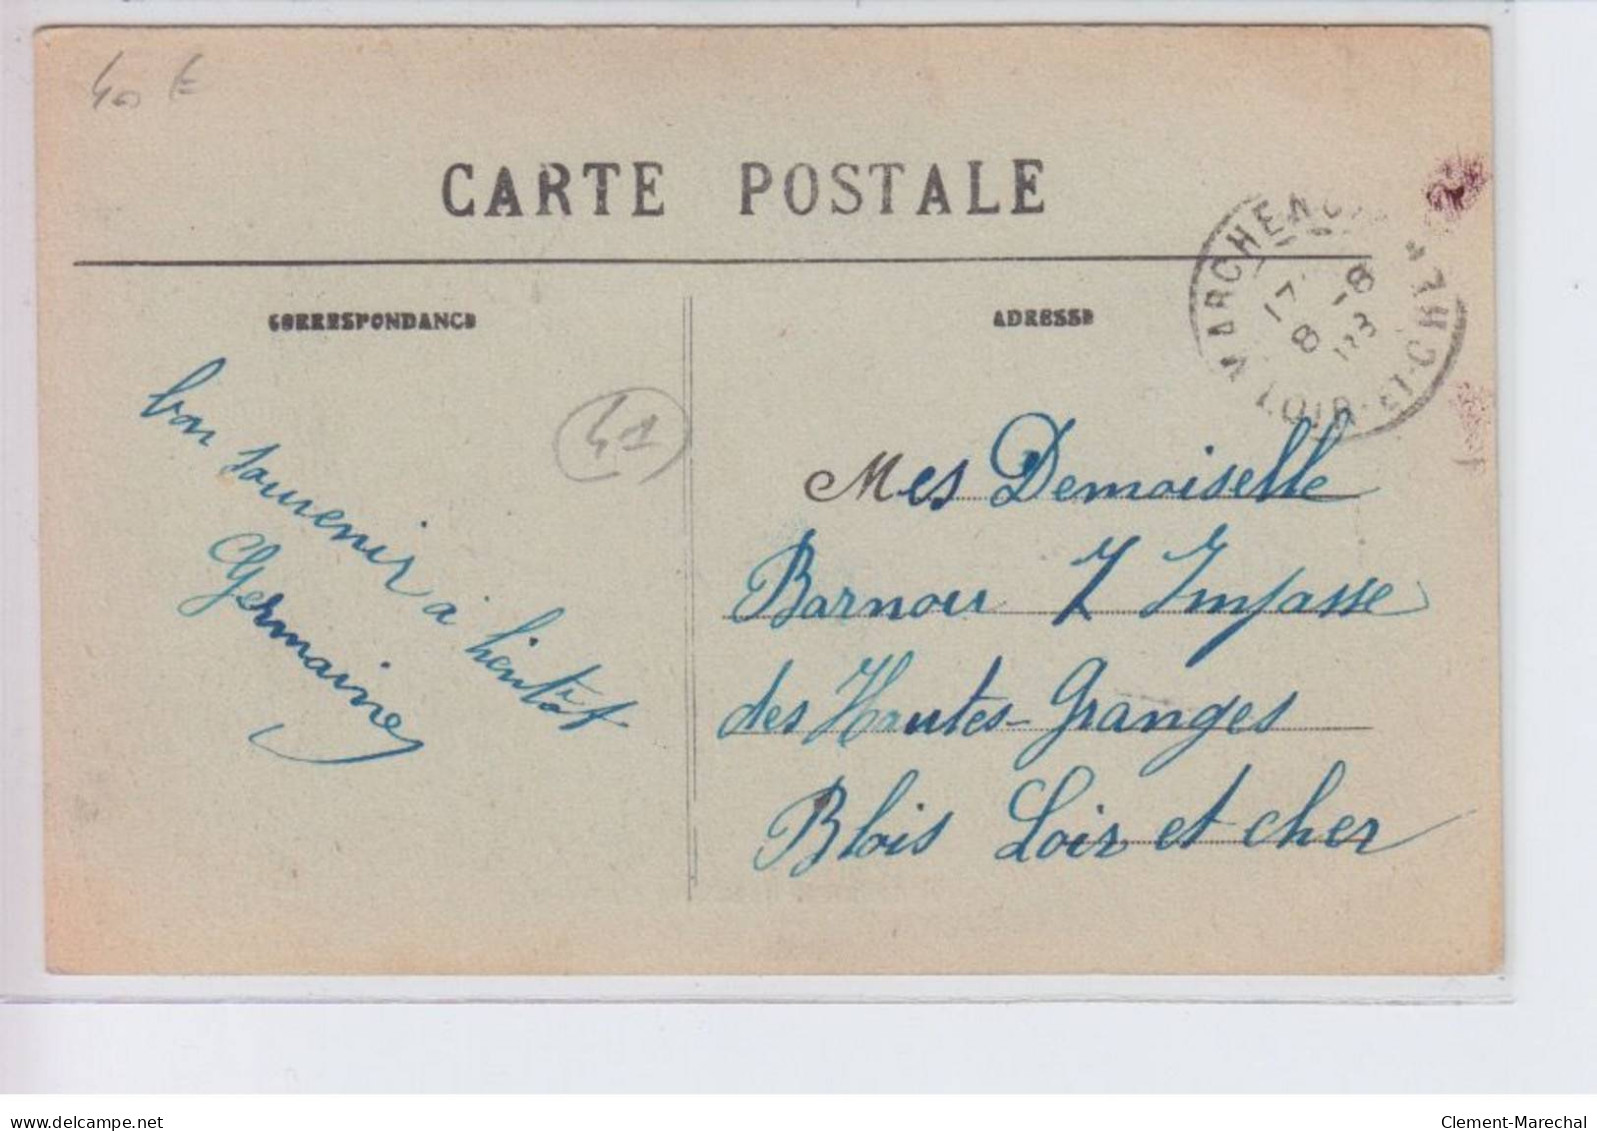 40 €
CARTE POSTALE
CORRESPONDANCE
ADRESSE
MARCHENOIR
17
8 -8
LOIR-ET-CHER
41
bon souvenir à bientôt
Germaine
Mes Demoiselle
Barnou 7 Impasse
des Hautes-Granges
Blois Loir et cher
Clement-Marechal